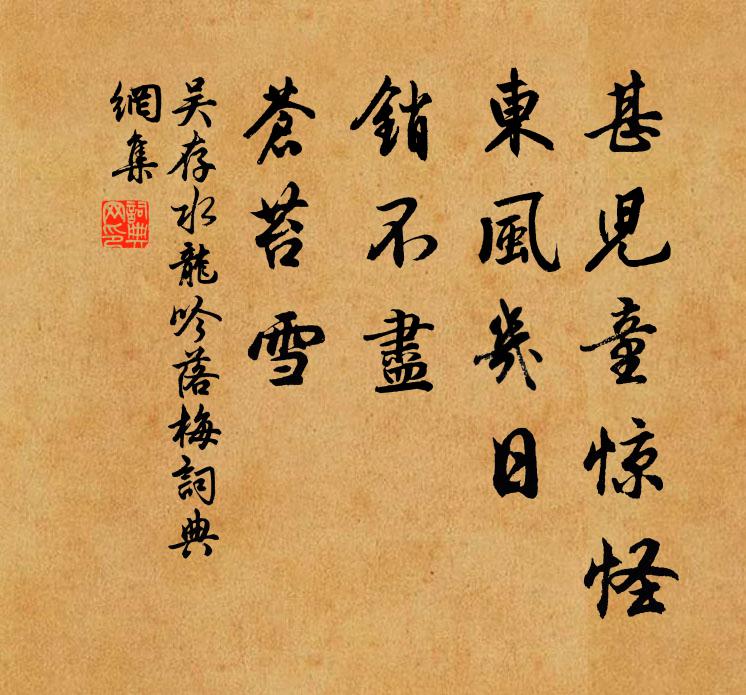 甚児童惊怪
東風幾日
銷不盡
蒼苔雪
吴存水龍吟落梅詞典
網集
詞典
网印